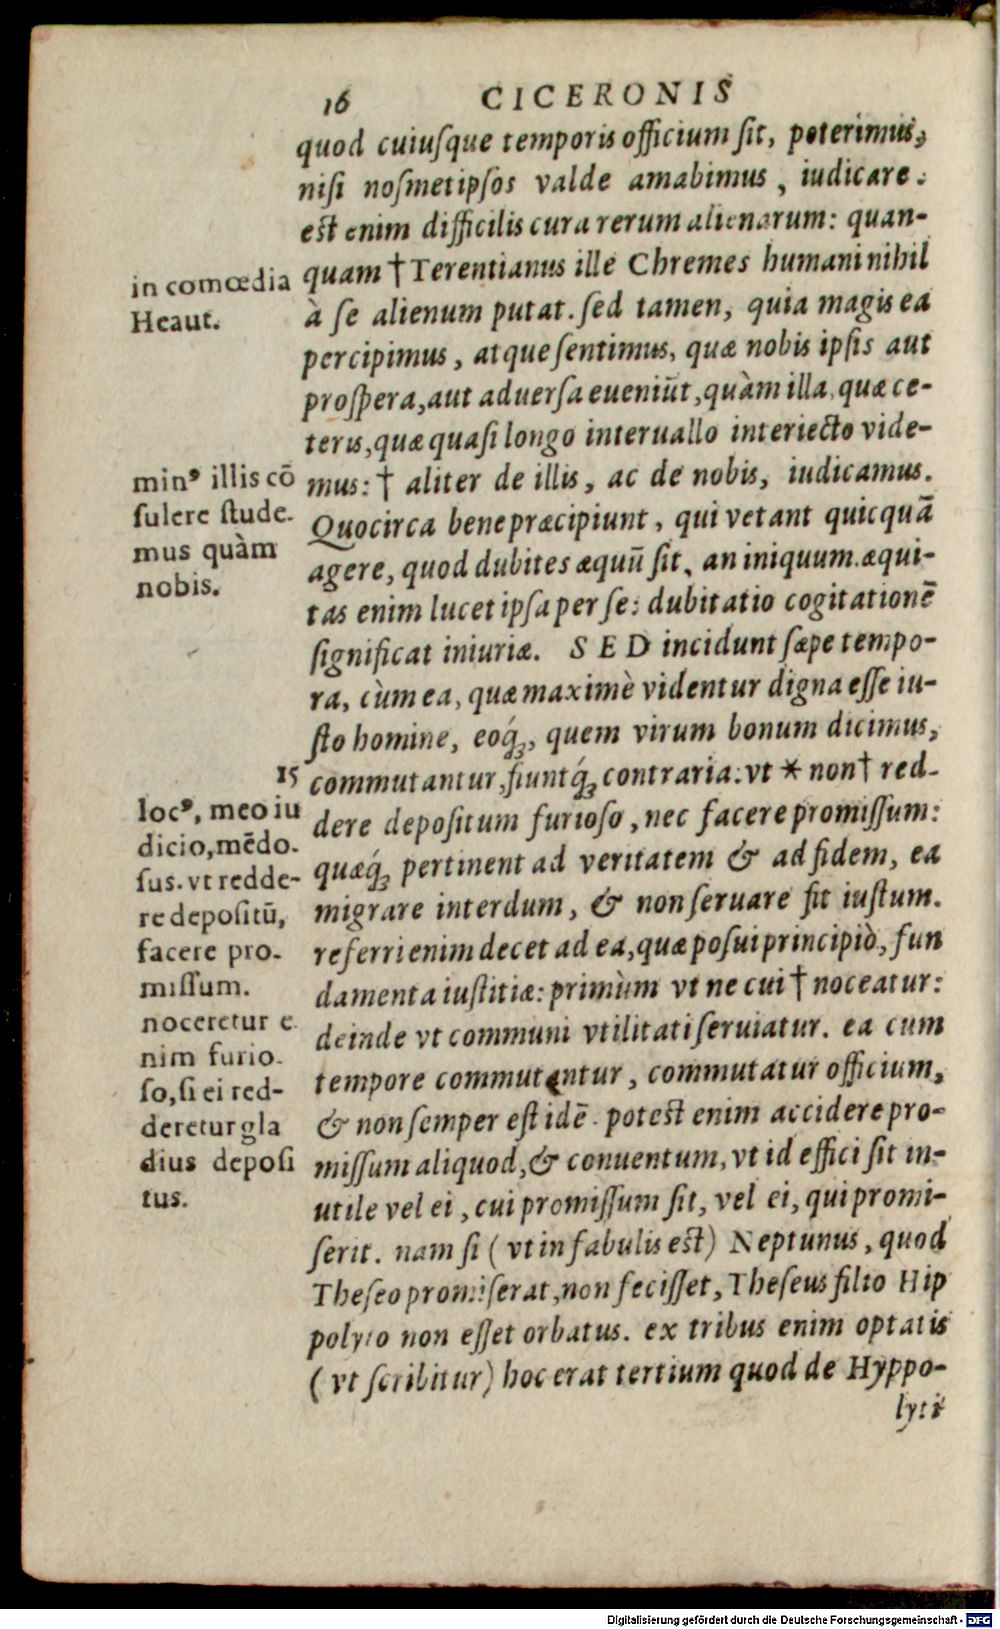 16 CICERONIS
quod cuiuſque temporis officium ſit, poterimus,
niſi noſmetipſos valde amabimus, iudicare.
est enim difficilis cura rerum alienarum: quan-
quam † Terentianus ille Chremes humani nihil
à ſe alienum putat. ſed tamen, quia magis ea
percipimus, atque ſentimus, quæ nobis ipſis aut
proſpera, aut aduerſa eueniūt, quàm illa, quæ ce-
teris, quæ quaſi longo interuallo interiecto vide-
mus: † aliter de illis, ac de nobis, iudicamus.
Quocirca bene præcipiunt, qui vetant quicquā
agere, quod dubites æquū ſit, an iniquum. æqui-
tas enim lucet ipſa per ſe: dubitatio cogitationē
ſignificat iniuriæ. SED incidunt ſæpe tempo-
ra, cùm ea, quæ maximè videntur digna eſſe iu-
ſto homine, eoq́ꝫ, quem virum bonum dicimus,
commutantur, fiuntq́ꝫ contraria: vt * non † red-
dere depoſitum furioſo, nec facere promiſſum:
quæq́ꝫ pertinent ad veritatem & ad fidem, ea
migrare interdum, & non ſeruare ſit iuſtum.
referri enim decet ad ea, quæ poſui principiò, fun
damenta iuſtitiæ: primùm vt ne cui † noceatur:
deinde vt communi vtilitati ſeruiatur. ea cum
tempore commutantur, commutatur officium,
& non ſemper eſt idē. potest enim accidere pro-
miſſum aliquod, & conuentum, vt id effici ſit in-
utile vel ei, cui promiſſum ſit, vel ei, qui promi-
ſerit. nam ſi (vt in fabulis est) Neptunus, quod
Theſeo promiſerat, non feciſſet, Theſeus filio Hip
polyto non eſſet orbatus. ex tribus enim optatis
(vt ſcribitur) hoc erat tertium quod de Hyppo-
lyti
in comœdia
Heaut.
minꝰ illis cō
ſulere ſtude-
mus quàm
nobis.
15
locꝰ, meo iu
dicio, mēdo-
ſus. vt redde-
re depoſitū,
facere pro-
miſſum.
noceretur e
nim furio-
ſo, ſi ei red-
deretur gla
dius depoſi
tus.
Digitalisierung gefördert durch die Deutsche Forschungsgemeinschaft - DFG